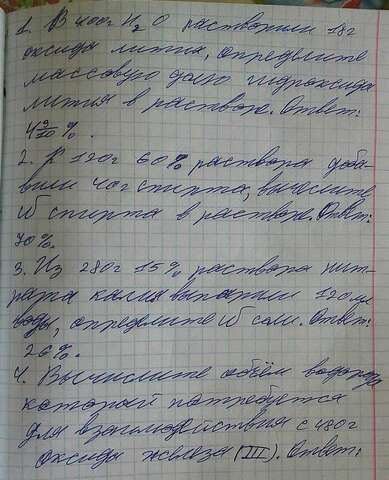 1. В 400г H₂O растворили 18г
оксида лития, определите
массовую долю гидроксида
лития в растворе. Ответ:
4 9/10 %.
2. К 120г 60% раствора доба-
вили 40г спирта, вычислите
ω спирта в растворе. Ответ:
70%.
3. Из 280г 15% раствора нит-
рата калия выпарили 120мл
воды, определите ω соли. Ответ:
26%.
4. Вычислите объём водорода
который потребуется
для взаимодействия с 480г
оксида железа (III). Ответ: